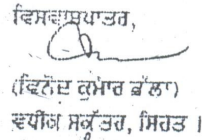 ਵਿਸਵਾਸ਼ਪਾਤਰ,
(ਵਿਨੋਦ ਕੁਮਾਰ ਭੱਲਾ)
ਵਧੀਕ ਸਕੱਤਰ, ਸਿਹਤ ।